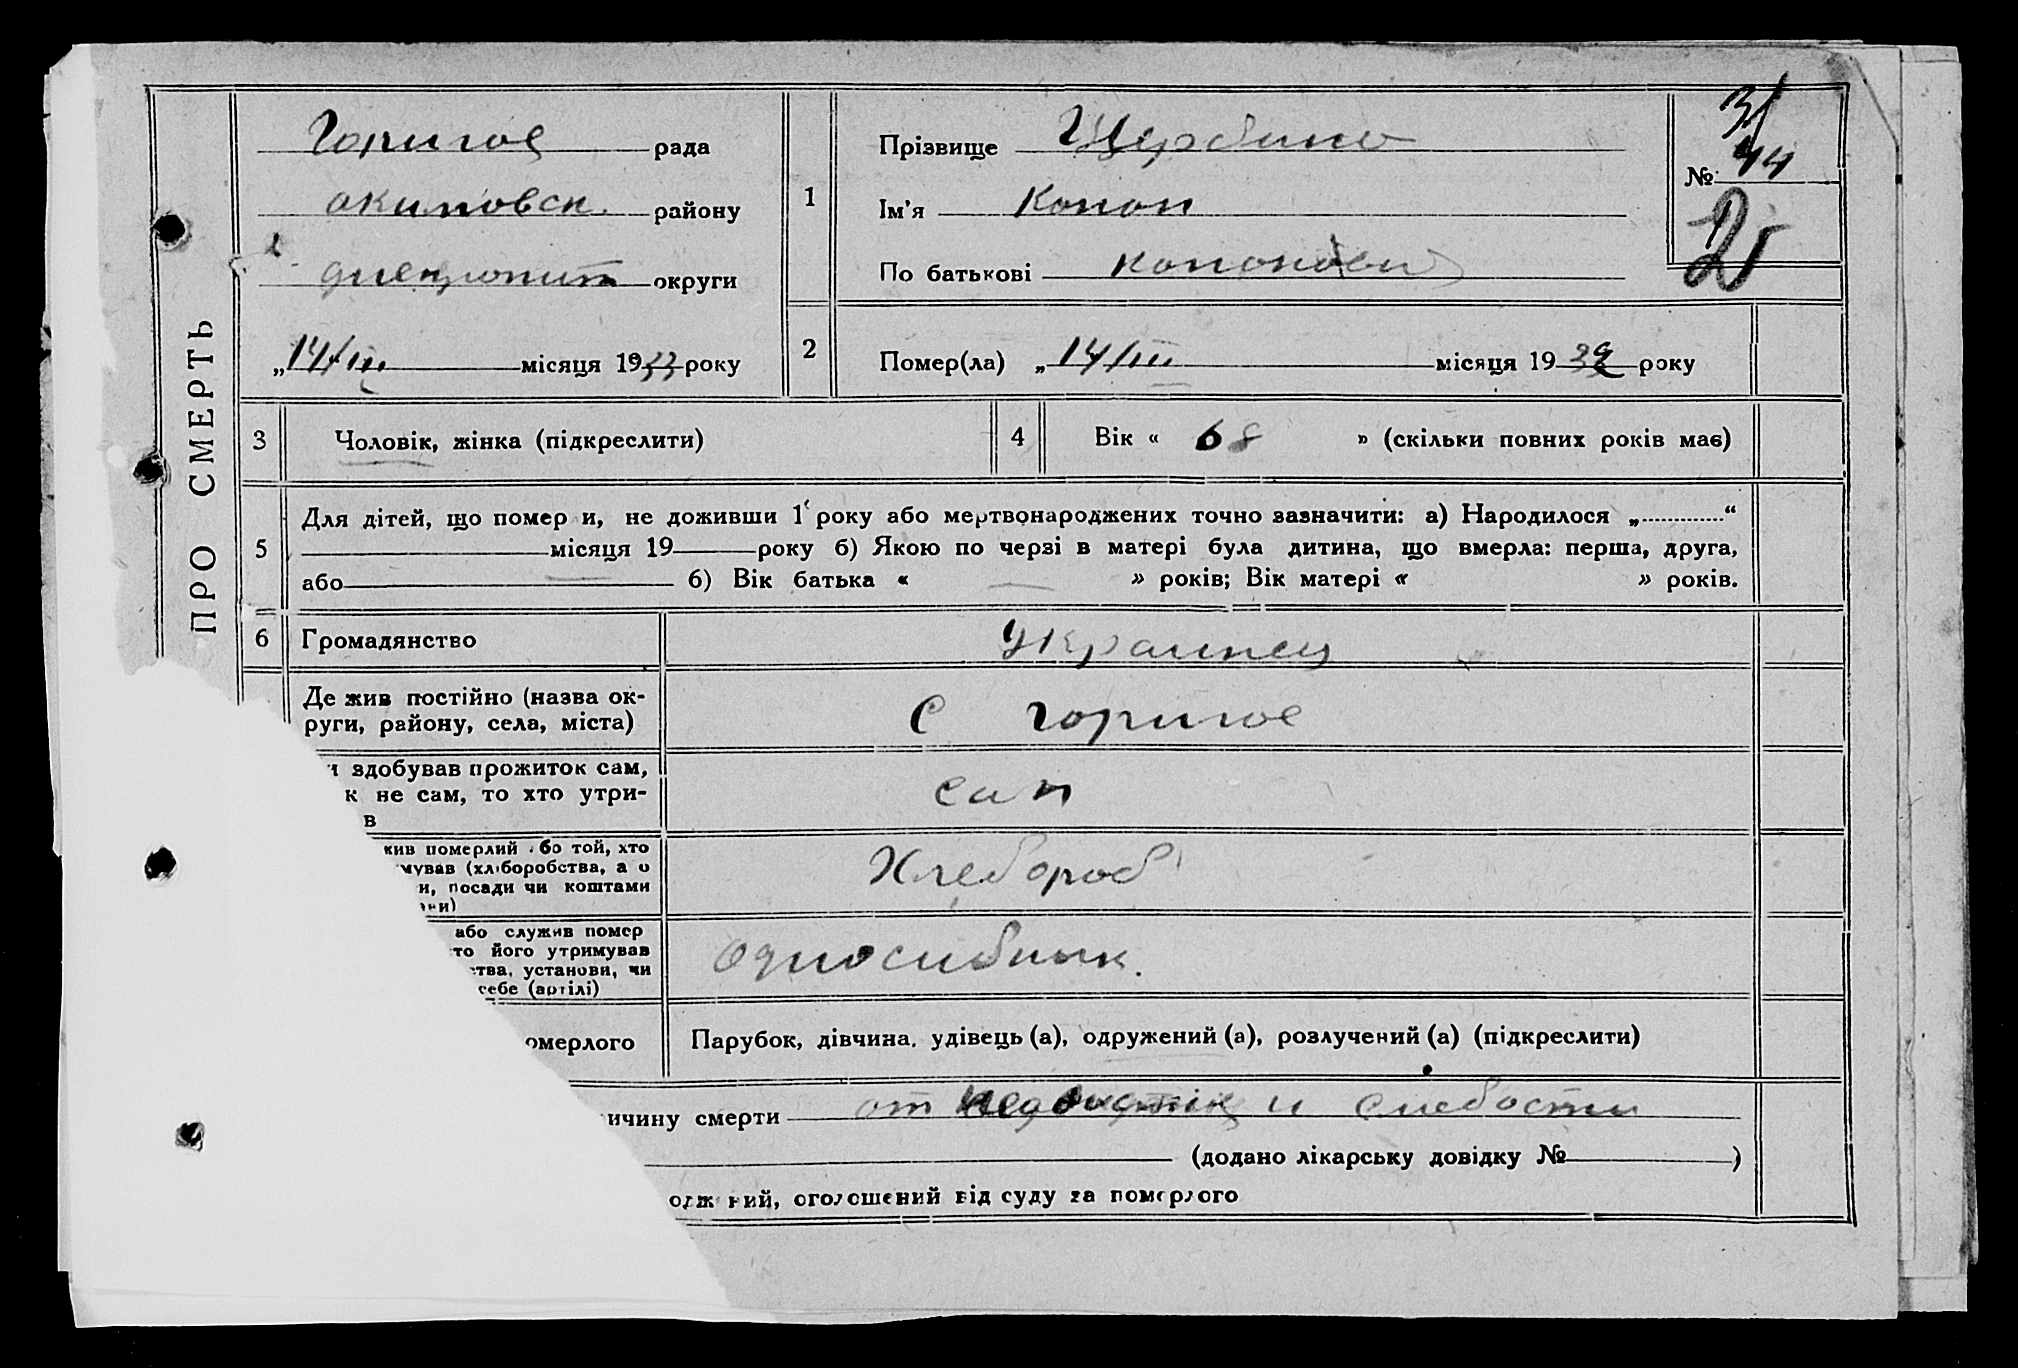 ПРО СМЕРТЬ
Горигое рада
акимовск. району
округи
„14/III місяця 1933 року
1
Прізвище Щербина
Ім'я Конон
По батькові
№ 44
2 Помер(ла) „14/III місяця 19 року
3 Чоловік, жінка (підкреслити)
4 Вік « 68 » (скільки повних років має)
5 Для дітей, що помер и, не доживши 1 року або мертвонароджених точно зазначити: а) Народилося „............“
місяця 19 року б) Якою по черзі в матері була дитина, що вмерла: перша, друга,
або б) Вік батька « » років; Вік матері « » років.
6 Громадянство Украинец
Де жив постійно (назва ок-
руги, району, села, міста) С горигое
и здобував прожиток сам,
к не сам, то хто утри-
в
сам
жив померлий бо той, хто
мував (хліборобства, а о
и, посади чи коштами
Хлебороб
або служив помер
то його утримував
ства, установи, чи
себе (артілі)
Односибник.
омерлого Парубок, дівчина, удівець (а), одружений (а), розлучений (а) (підкреслити)
ичину смерти от и слабости
(додано лікарську довідку № )
одж ний, оголошений від суду за померлого